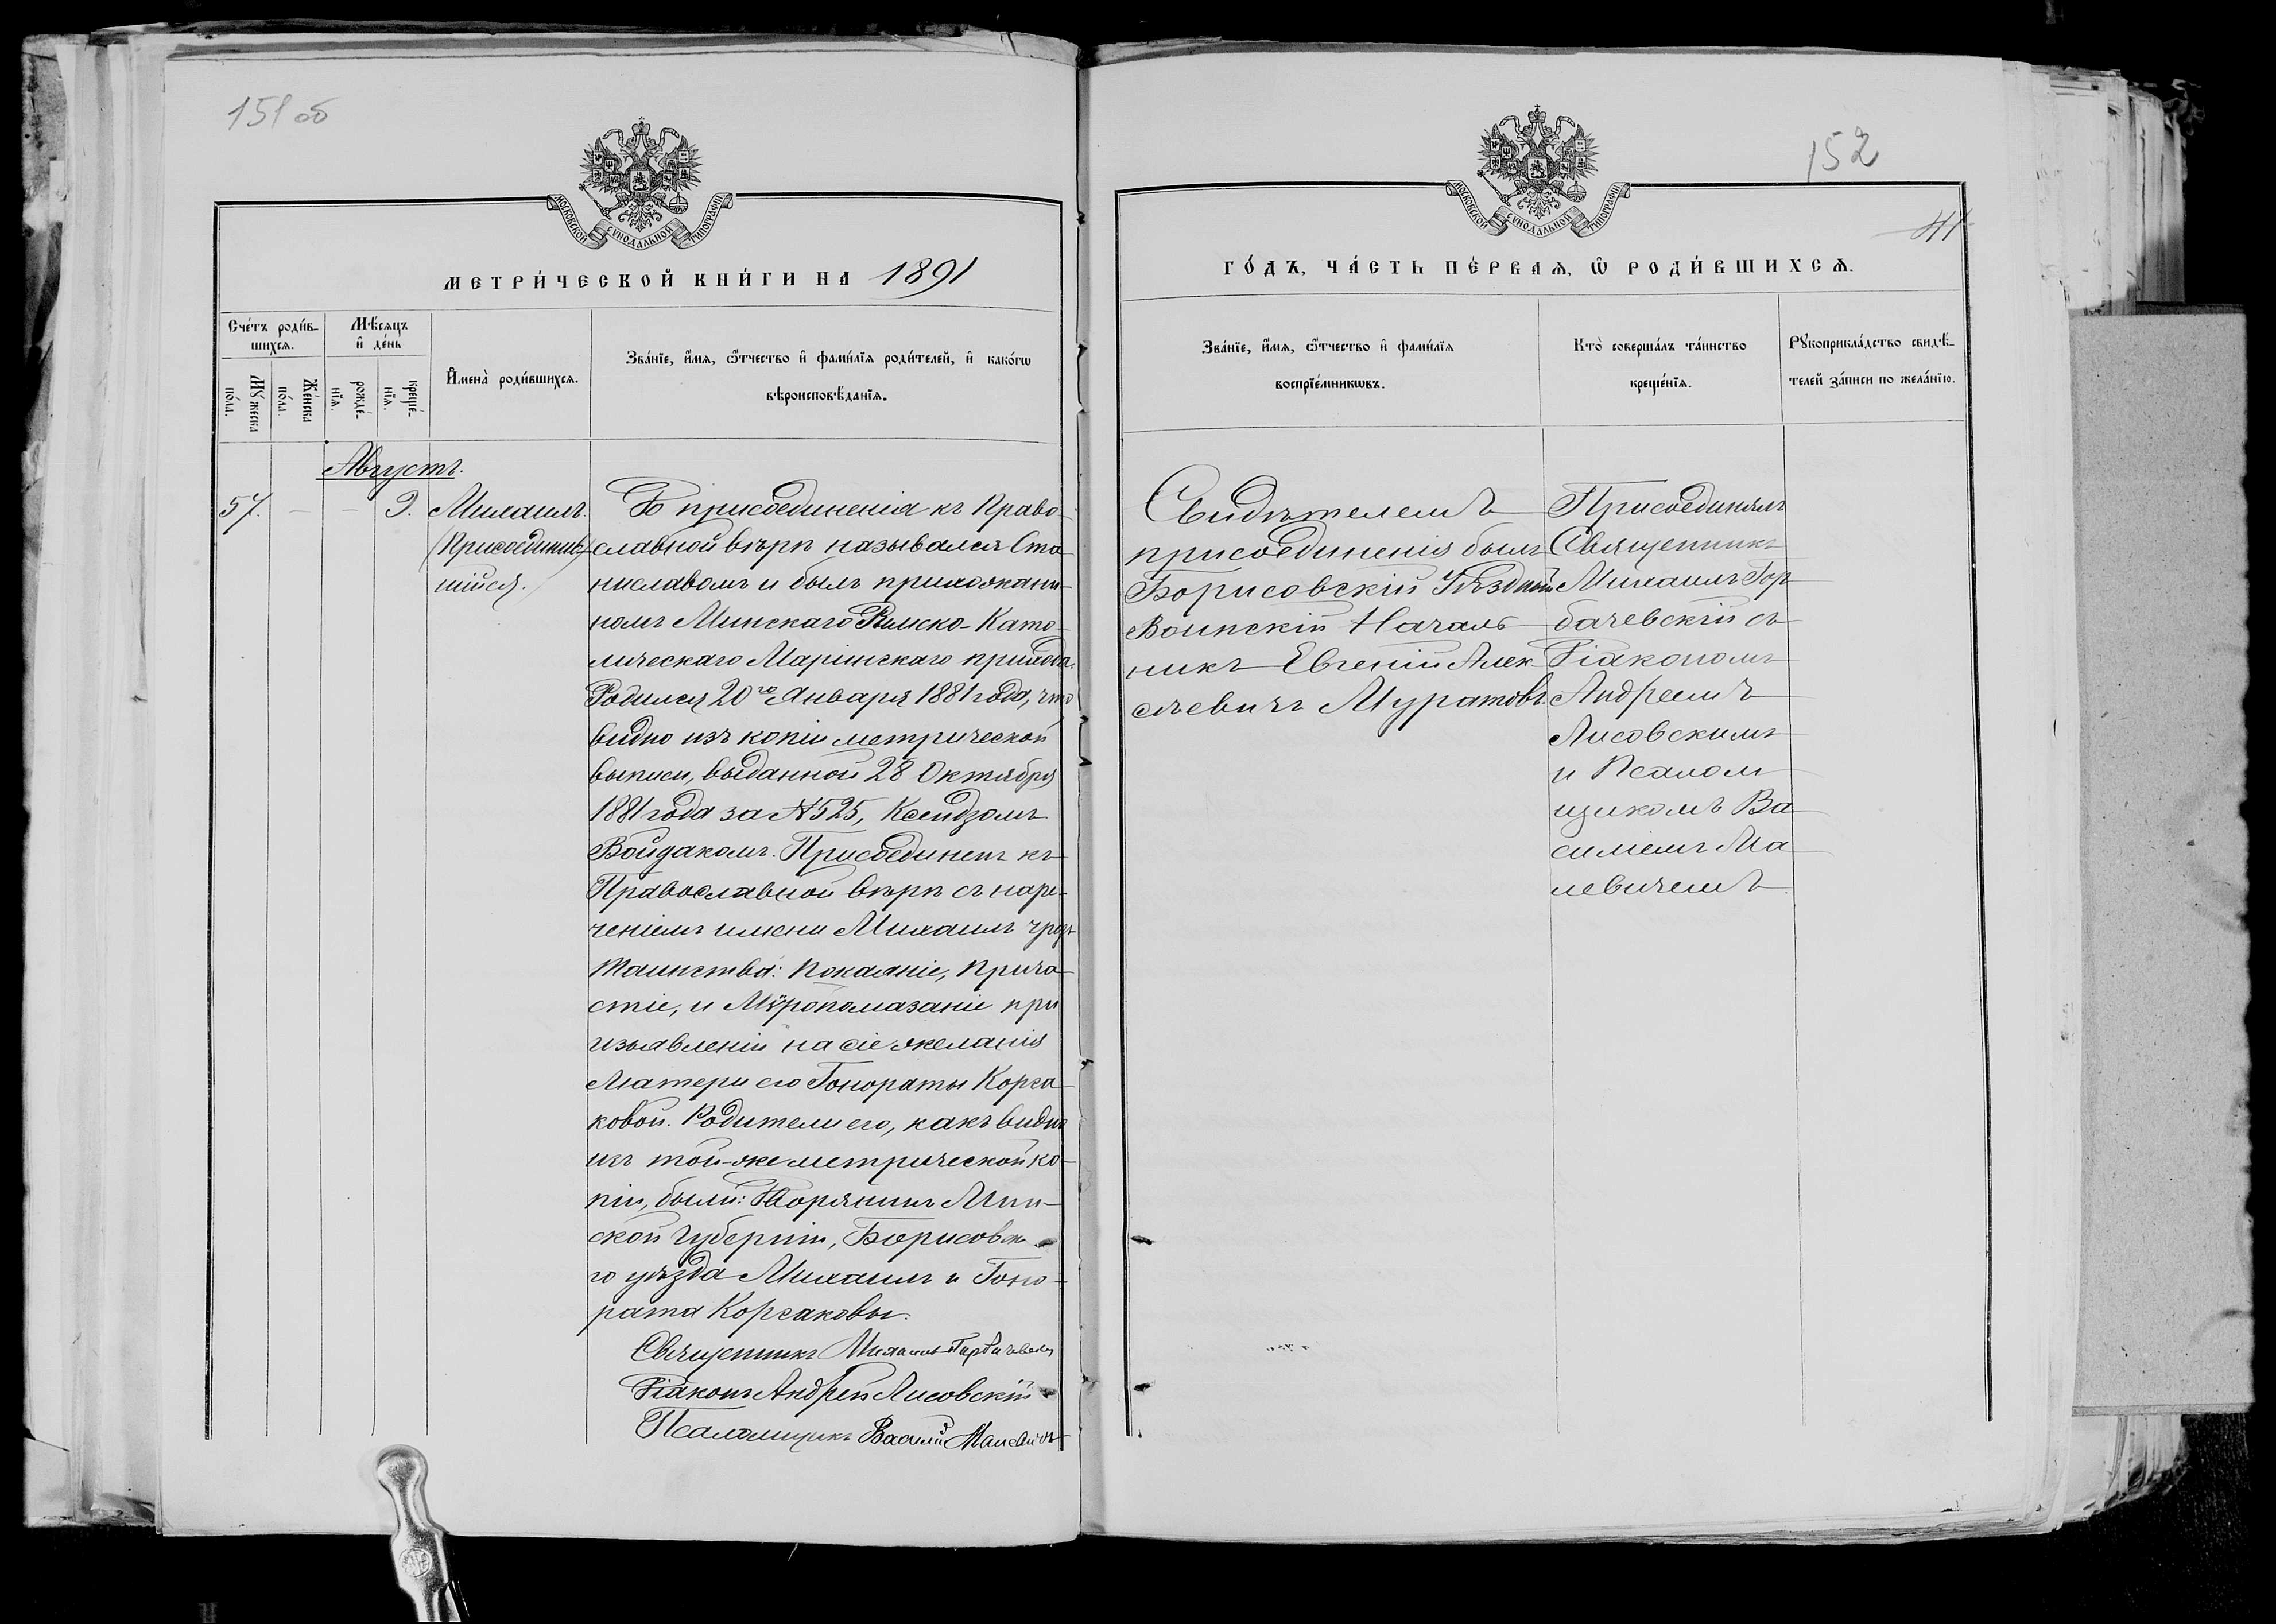 151 об
МОСКОВСКОЙ СУНОДАЛЬНОЙ ТИПОГРАФІИ
МЕТРИ́ЧЕСКОЙ КНИ́ГИ НА 1891
Сче́тъ роди́в-
шихся.
Мѣ́сяцъ
и҆ де́нь
Му́жеска
по́ла.
Же́нска
по́ла.
рожде́-
нїя.
креще́-
нїя.
И҆мена̀ роди́вшихся.
Зва́нїе, и҆́мя, ѻ҆́тчество и҆ фами́лїя роди́телей, и҆ како́гѡ
вѣроисповѣ́данїя.
Августъ.
57. — — 9. Михаилъ.
(Присоединив-
шійся.
До присоединенія къ Право-
славной вѣрѣ назывался Ста-
ниславомъ и былъ прихожани-
номъ Минскаго Римско-Като-
лическаго Маріинскаго прихода.
Родился 20го Января 1881 года, что
видно изъ копіи метрической
выписи, выданной 28 Октября
1881 года за №525, Ксендзомъ
Войдакомъ. Присоединенъ къ
Православной вѣрѣ съ наре-
ченіемъ имени Михаилъ чрезъ
Таинства: Покаяніе, Прича-
стіе, и Мѵропомазаніе при
изъявленіи на сіе желанія
Матери его Гонораты Корса-
ковой. Родители его, какъ видно
изъ той-же метрической ко-
піи, были: Дворянинъ Мин-
ской губерніи, Борисовска-
го уѣзда Михаилъ и Гоно-
рата Корсаковы.
Священникъ Михаилъ Горбачевскій
Діаконъ Андрей Лисовскій
Псаломщикъ Василій Малевичъ
152
41
МОСКОВСКОЙ СУНОДАЛЬНОЙ ТИПОГРАФІИ
ГО́ДЪ, ЧА́СТЬ ПЕ́РВАЯ, Ѡ҆ РОДИ́ВШИХСЯ.
Зва́нїе, и҆́мя, ѻ҆́тчество и҆ фами́лїя
воспрїе́мникѡвъ.
Кто̀ соверша́лъ та́инство
креще́нїя.
Рꙋкоприкла́дство свидѣ́-
телей за́писи по жела́нїю.
Свидѣтелемъ
присоединенія былъ
Борисовскій Уѣздный
Воинскій Началь-
никъ Евгеній Алек-
сѣевичъ Муратовъ.
Присоединялъ
Священникъ
Михаилъ Гор-
бачевскій съ
Діакономъ
Андреемъ
Лисовскимъ
и Псалом-
щикомъ Ва-
силіемъ Ма-
левичемъ